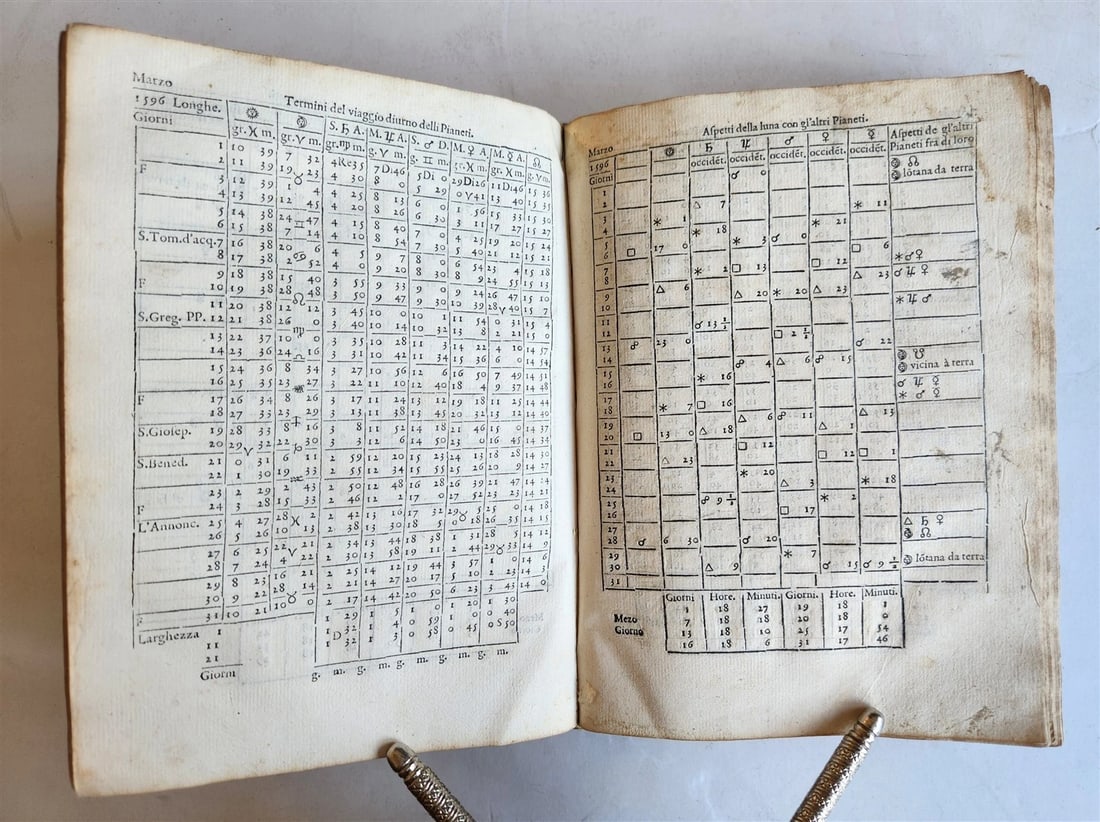 Marzo
1596 Longhe.
Giorni
Termini del viaggio diurno delli Pianeti.
S. ♄ A. M. ♃ A. S. ♂ D. M. ♀ A. M. ☿ A. ☊
gr. ♓ m. gr. ♈ m. gr. ♍ m. g. ♈ m. g. ♊ m. gr. ♓ m. gr. ♓ m. g. ♈ m.
1 10 39 7 32 4Re35 7Di46 5Di0 29Di26 11Di46 15 36
F 11 39 19 23 4 30 8 0 5 29 0♈41 13 40
3 12 39 ♉ 1 4 4 25 8 13 6 0 1 56 15 33 15 30
4 13 39 12 45 4 20 8 26 6 30 3 11 17 27 15 27
5 14 38 24 47 4 15 8 40 7 0 4 25 19 20 15 24
6 15 38 ♊ 7 14 4 10 8 54 7 30 5 40 21 12 15 21
S.Tom.d'acq.7 16 38 20 6 4 5 9 7 8 0 6 54 23 4 15 18
8 17 38 ♋ 2 52 4 0 9 20 8 30 8 9 24 55
9 18 38 15 40 3 55 9 33 9 0 9 24 26 47 15 10
F 10 19 38 28 48 3 50 9 47 9 30 10 39 28♈40 15 7
11 20 38 ♌ 12 12 3 45 10 0 10 1 11 54 0 31 15 4
S.Greg. PP. 12 21 38 26 0 3 40 10 14 10 32 13 8 2 21 15 0
13 22 37 ♍ 10 0 3 35 10 28 11 3 14 22 4 10 14 57
14 23 36 24 16 3 31 10 42 11 34 15 36 6 0 14 54
15 24 36 ♎ 8 34 3 27 10 56 12 6 16 50 7 49 14 51
16 25 35 23 27 3 22 11 10 12 40 18 4 9 37 14 48
F 17 26 34 8 26 3 17 11 24 13 12 19 18 11 25 14 44
18 27 33 23 29 3 13 11 38 13 45 20 32 13 12 14 40
S.Giosep. 19 28 33 8 16 3 8 11 52 14 18 21 46 15 0 14 37
20 29 32 22 30 3 3 12 6 14 50 23 0 16 45 14 34
S.Bened. 21 ♈ 0 31 6 11 2 59 12 20 15 23 24 13 18 28 14 30
22 1 30 19 33 2 55 12 34 15 55 25 26 20 10 14 27
23 2 29 ♒ 2 43 2 50 12 48 16 28 26 39 21 47 14 24
F 24 3 28 15 33 2 46 12 2 17 0 27 52 23 25 14 21
L'Annonc. 25 4 27 28 2 2 42 13 16 17 32 29 5 25 0 14 18
26 5 26 ♓ 10 13 2 38 13 30 18 5 ♉ 0 18 26 35 14 15
27 6 25 22 21 2 34 13 44 18 38 1 31 28 5 14 12
28 7 24 ♈ 4 22 2 30 13 58 19 11 2 44 29♉33 14 9
29 8 23 16 21 2 25 14 12 19 44 3 57 1 0 14 6
30 9 22 28 14 2 21 14 27 20 17 5 10 2 23 14 3
F 31 10 21 ♉ 10 0 2 17 14 42 20 50 6 23 3 43 14 0
Larghezza 1 1 32 1 5 1 0 1 20 1 30
11 1 D 32 1 4 0 59 1 0 0 40
21 1 32 1 3 0 58 0 45 0 S 50
Giorni g. m. g. m. g. m. g. m. g. m.
Aspetti della luna con gl'altri Pianeti.
Marzo
1596
Giorni
♄ ♃ ♂ ♀ ☿
occidét. occidét. occidét. occidét. occidét.
Aspetti de gl'altri
Pianeti fra di loro
1 ☌ 0 ☊
lótana da terra
2 △ 7 ✶ 11
3 ✶ 1
4 ✶ 18 ✶ 21
5 □ 17 0 ✶ 3 ☌ 0
6 □ 6
7 ✶ 2 □ 13 □ 12 ✶ ♂ ♀
8 △ 23 ☌ ♃ ♀
9 △ 6 △ 20 ✶ 20 △ 23
10 ✶ ♃ ♂
11 ☌ 13 ½
12 □ 2 ½
13 ☍ 23 0 ☌ 22
14 ☍ 4 △ 6 ☍ 15 ☋
vicina à terra
15 ✶ 16
16 ☌ ♃ ☿
✶ ♂ ☿
17 □ 16
18 ✶ 7 △ 6 ☍ 11 △ 13
19 △ 18 △ 1
20 □ 13 0
21 □ 12 □ 12 □ 1
22 △ 23
23 ✶ 20 △ 3 ✶ 18
24
25 ☍ 9 ½ ✶ 2
26 □ 17
27 △ ♄ ♀
28 ☌ 6 30 ☌ 20 ☊
29 ✶ 7
30 △ 9 ☌ 15 ☌ 9 ½ lótana da terra
31
Mezo
Giorno
Giorni Hore. Minuti. Giorni. Hore. Minuti.
1 18 27 19 18 1
7 18 18 20 18 0
13 18 10 25 17 54
16 18 6 31 17 46